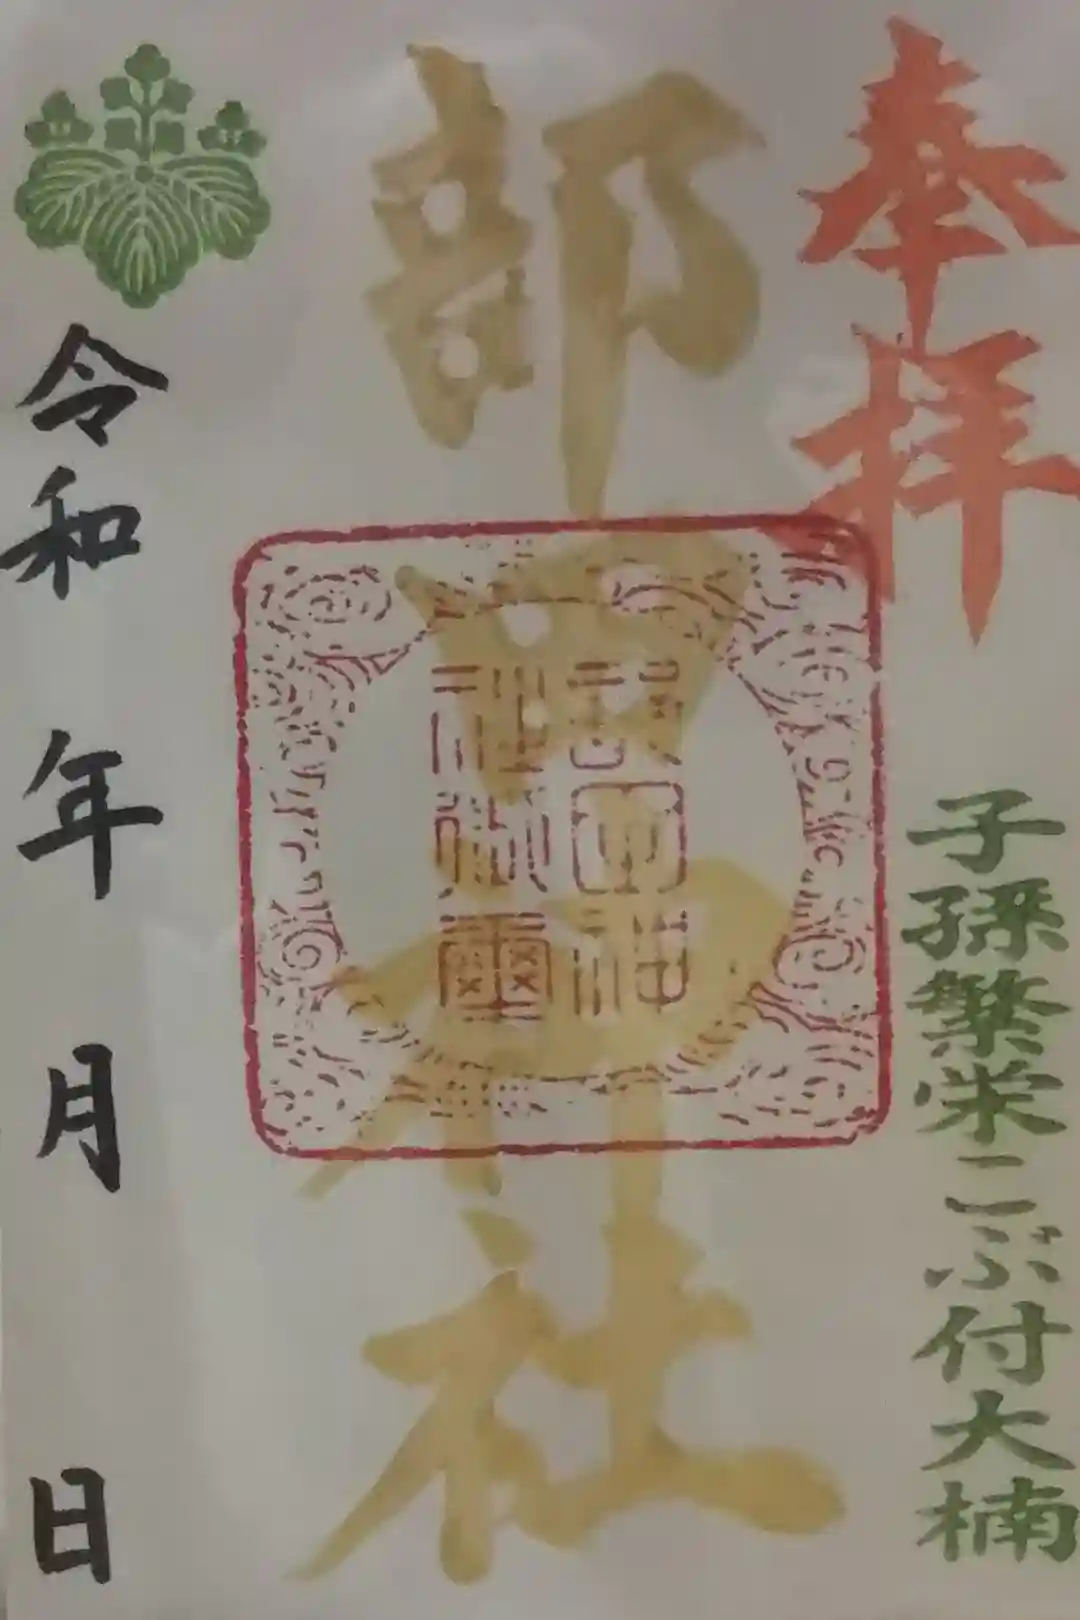 奉拝
子孫繁栄こぶ付大楠
部田神社
令和 年 月 日